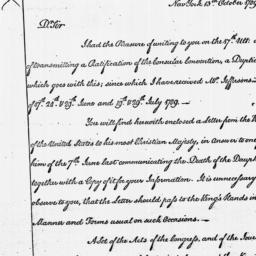 New York 13th October 1789
D. Sir
I had the Pleasure of writing to you on the 27th Ult:
of transmitting a Ratification of the Consular Convention, a Duplicate
which goes with this; since which I have received Mr. Jefferson's
of 17. 24 & 29. June and 19. & 29. July 1789. —
You will find herewith enclosed a Letter from the
of the United States to his most Christian Majesty, in answer to one
him of the 7th June last communicating the Death of the Dauphin
together with a Copy of it for your Information. It is unnecessary
observe to you, that the Letter should pass to the King's Hands in
Manner and Forms usual on such Occasions. —
A Set of the Acts of the Congress, and of the Jour